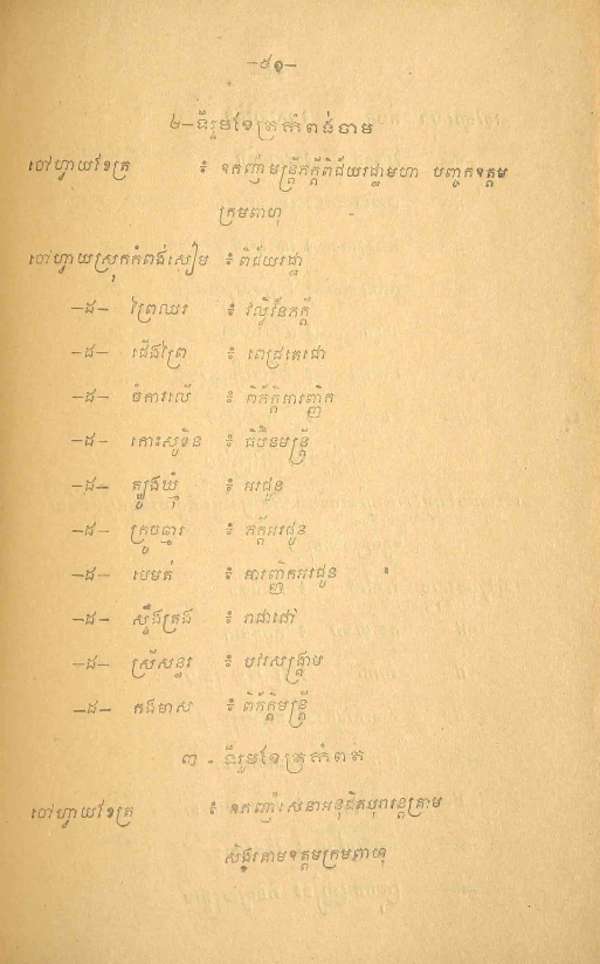 –៩១–
២–ទីរួមខែត្រកំពង់ចាម
ចៅហ្វាយខែត្រ ៖ ឧកញ៉ាមន្ត្រីភក្តីពិជ័យរដ្ឋាមហា បញ្ចកឧត្តម
ក្រមពាហុ
ចៅហ្វាយស្រុកកំពង់សៀម ៖ ពិជ័យរដ្ឋា
–ដ– ព្រៃឈរ ៖
–ដ– ជើងព្រៃ ៖ ពេជ្រតេជោ
–ដ– ចំការលើ ៖
–ដ– កោះសូទិន ៖ ធិបឺនមន្ត្រី
–ដ– ត្បូងឃ្មុំ ៖ អរជូន
–ដ– ក្រូចឆ្មារ ៖ ភក្តីអរជូន
–ដ– មេមត់ ៖ សារញ្ញិកអរជូន
–ដ– ស្ទឹងត្រង ៖ រាជាដៅ
–ដ– ស្រីសន្ធរ ៖ បវរសង្គ្រាម
–ដ– កងមាស ៖ ពិភ័ក្តិមន្ត្រី
៣ - ទីរួមខែត្រកំពត
ចៅហ្វាយខែត្រ ៖ ឧកញ៉ាសេនាអនុជិត
ឧត្តមក្រមពាហុ